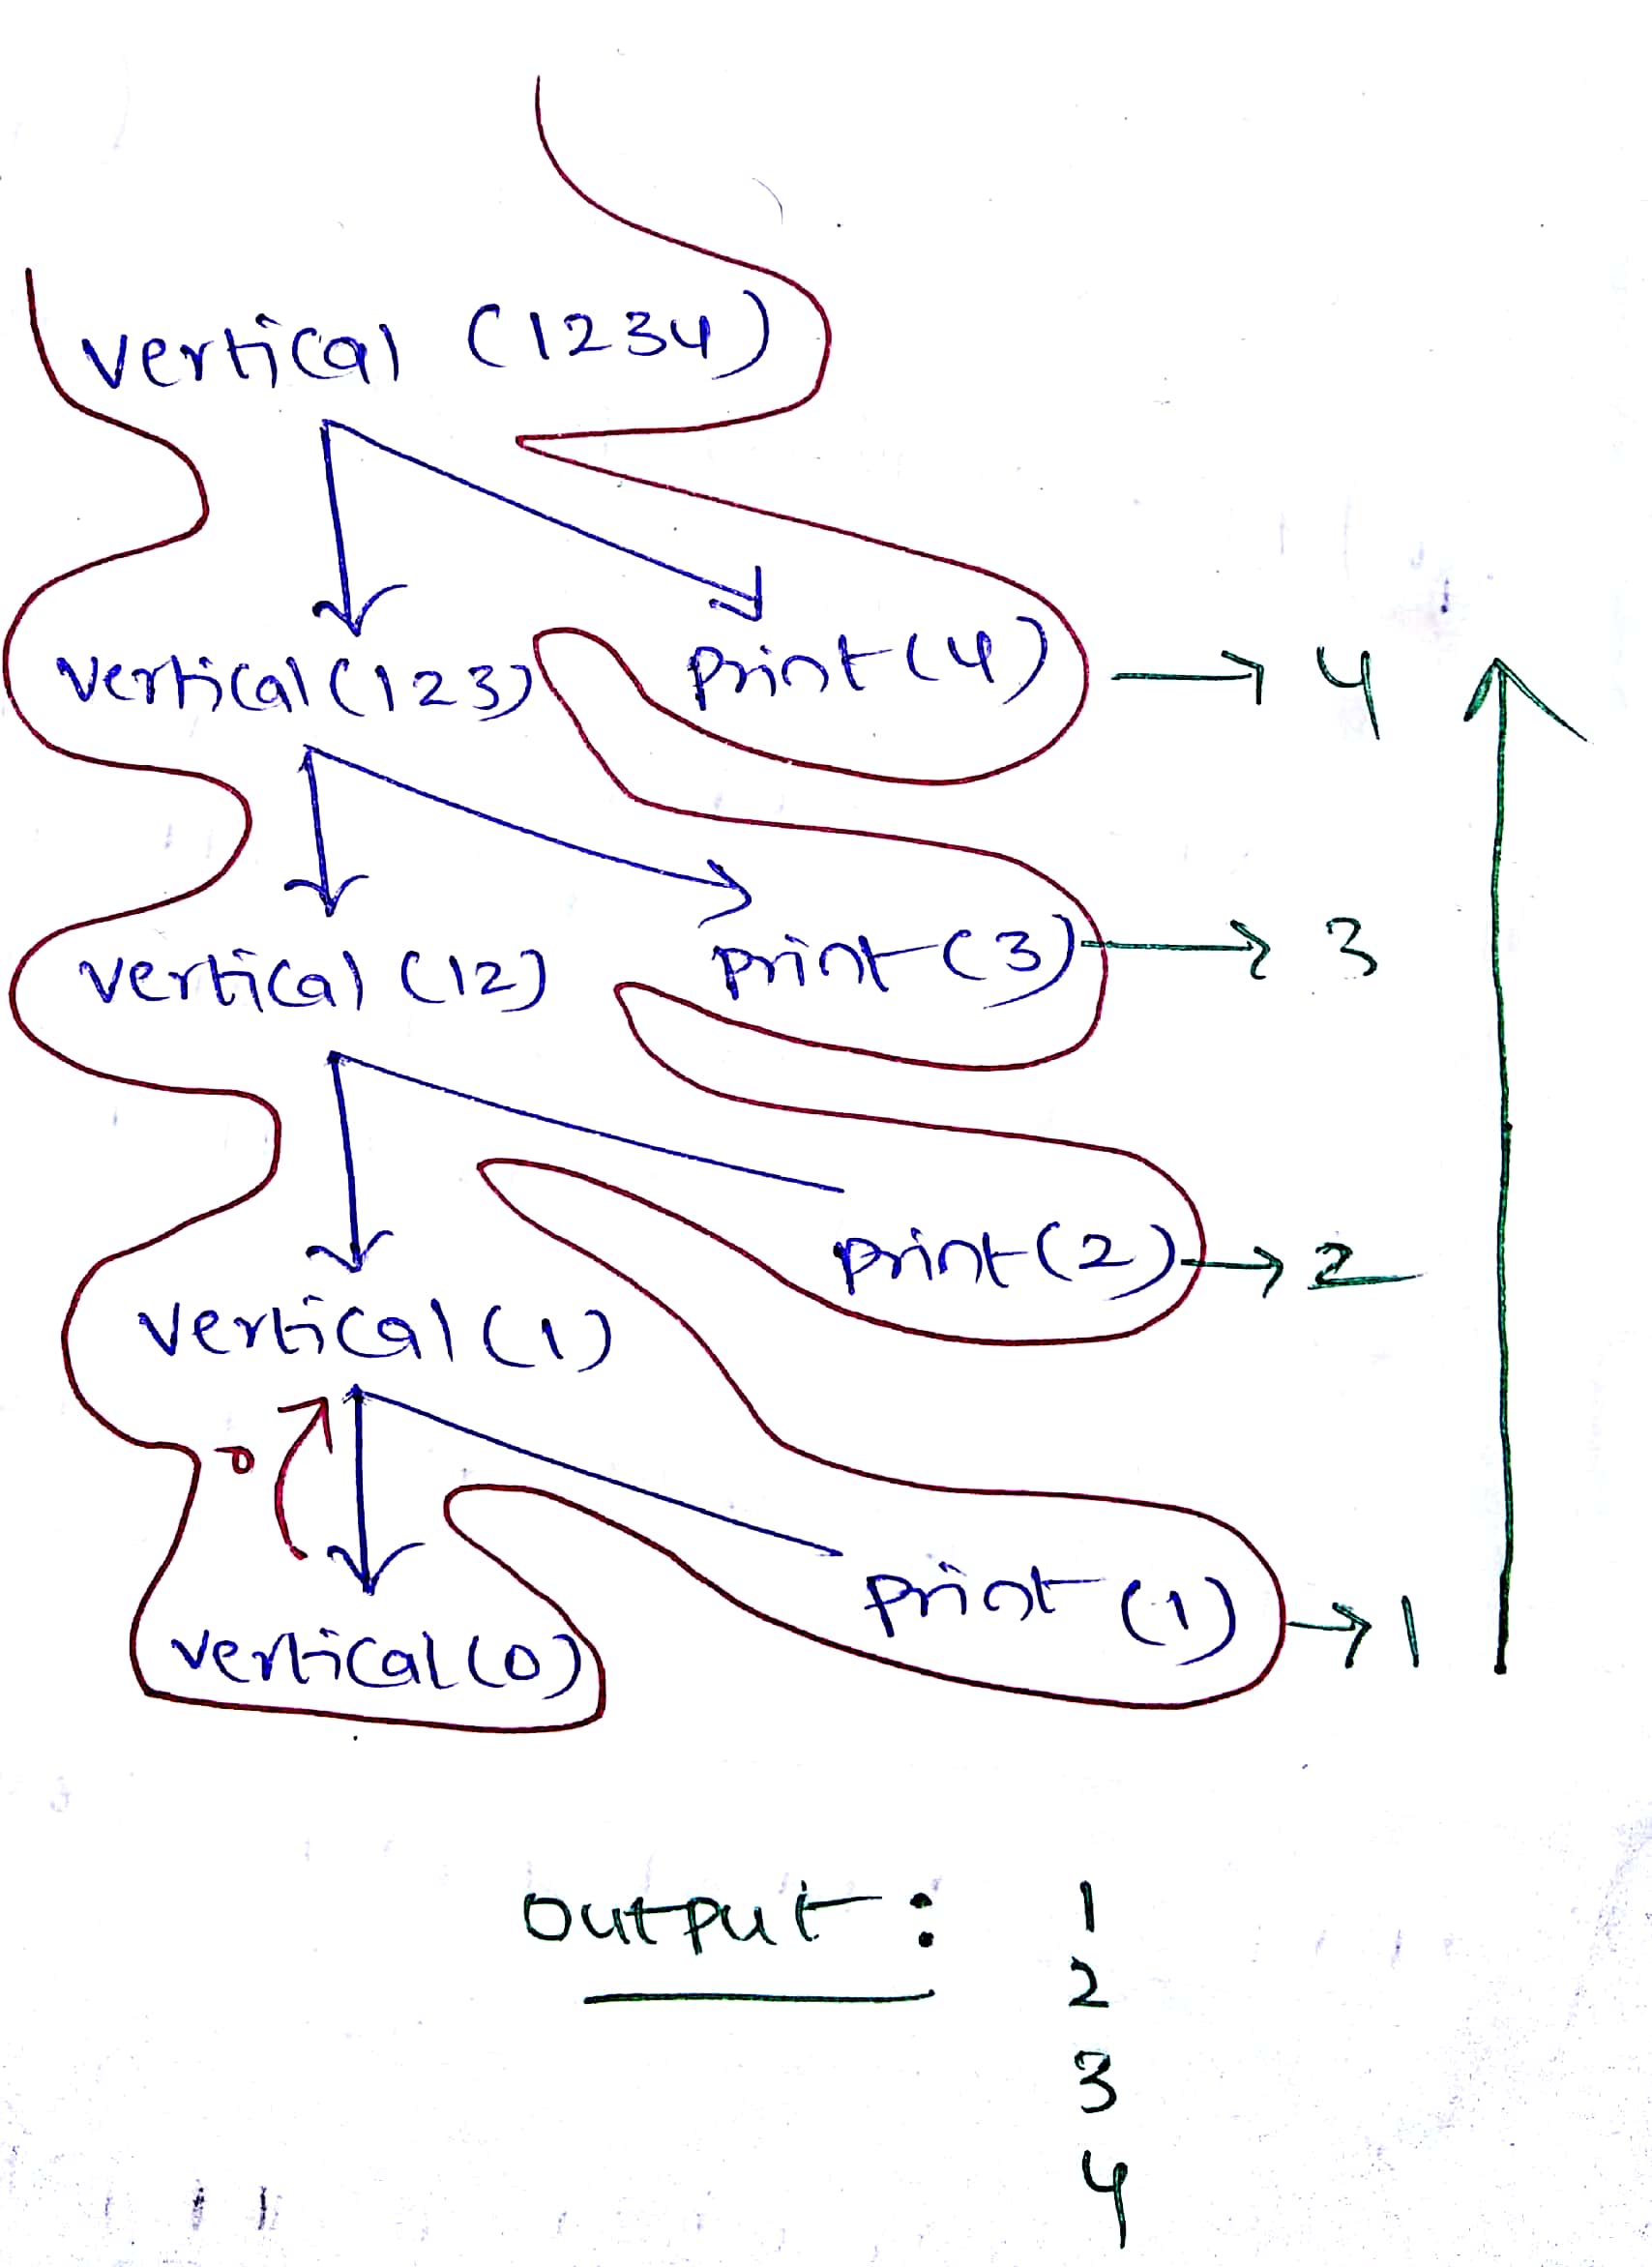 vertical (1234)
vertical (123) print (4) → 4
vertical (12) print (3) → 3
print (2) → 2
vertical (1)
0
print (1) → 1
vertical (0)
output : 1
2
3
4